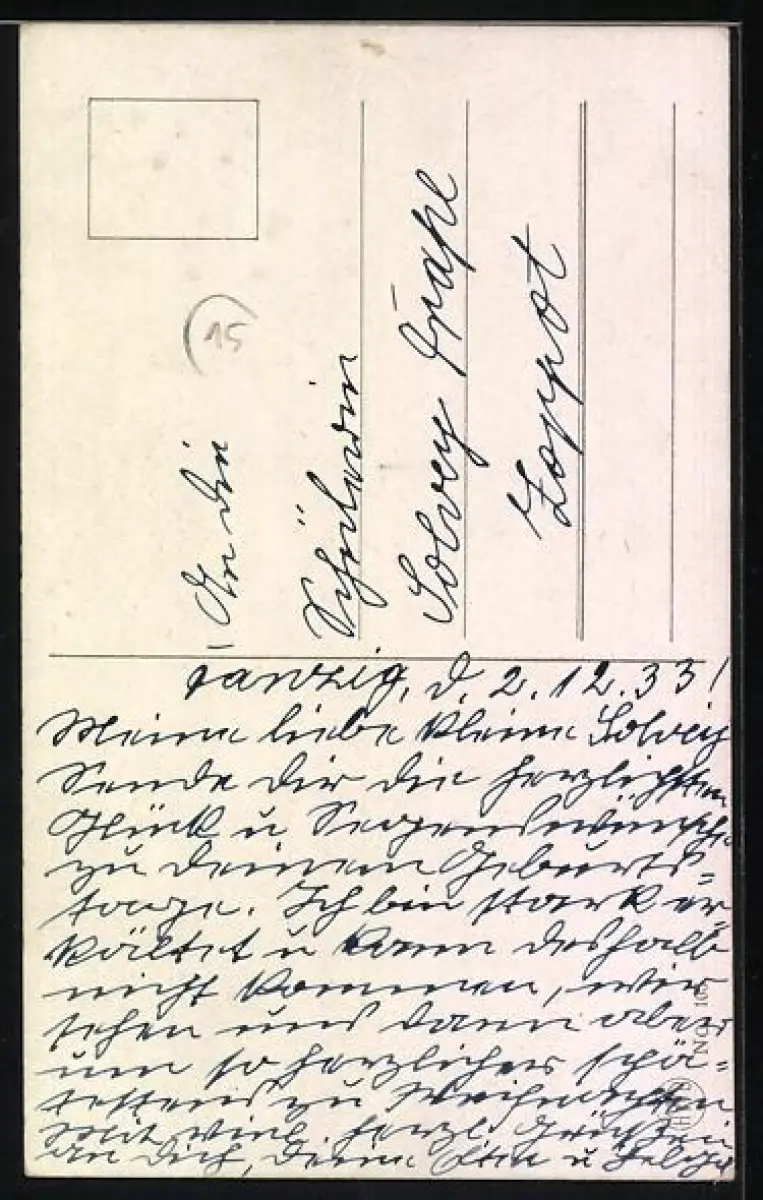 15
An die
Schülerin
Solveig
Zoppot
Danzig, d. 2.12.33!
Meine liebe kleine Solveig
Sende dir die herzlichsten
Glück u Segenswünsche
zu deinem Geburts-
tage. Ich bin stark er-
kältet u kann deshalb
nicht kommen, wir
sehen uns dann aber
um so herzlicher spä-
testens zu Weihnachten
Mit viel. herzl. Grüßen
an dich, deine Eltern u